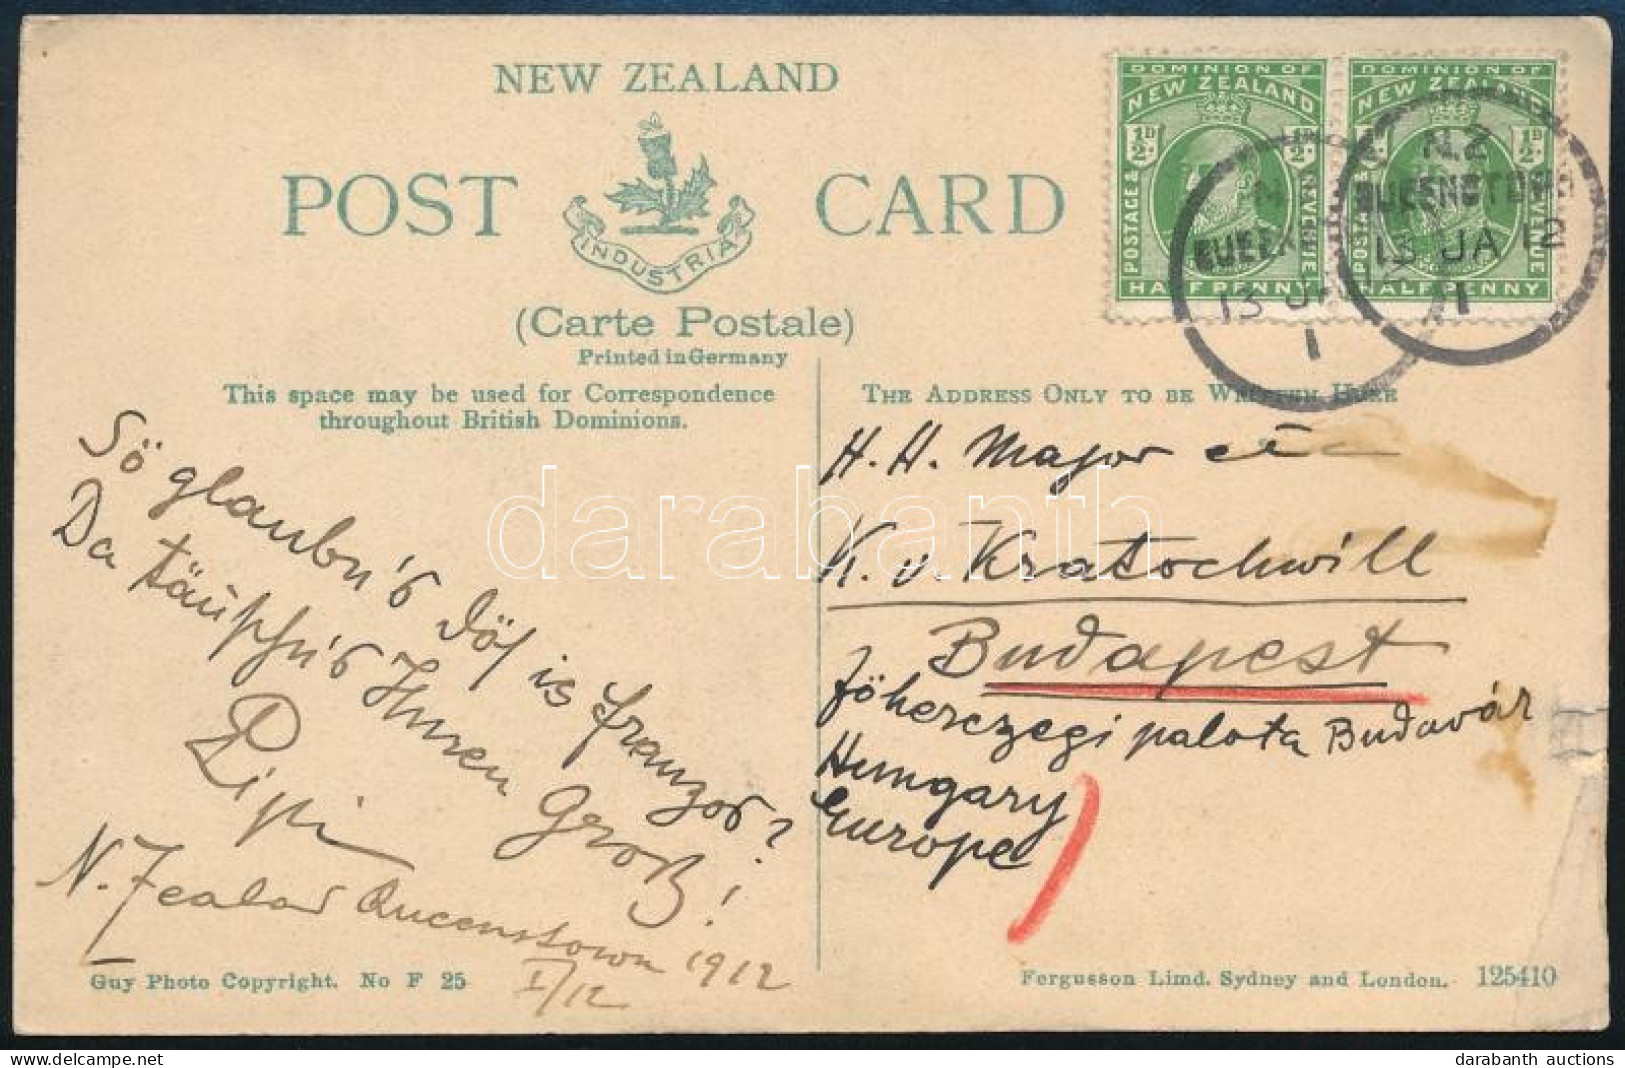 NEW ZEALAND
POST CARD
INDUSTRIA
(Carte Postale)
Printed in Germany
This space may be used for Correspondence
throughout British Dominions.
THE ADDRESS ONLY TO BE WRITTEN HERE
DOMINION OF
NEW ZEALAND
½D
POSTAGE & REVENUE
HALF PENNY
DOMINION OF
NEW ZEALAND
½D
POSTAGE & REVENUE
HALF PENNY
13 JA
1
N.Z
QUEENSTOWN
13 JA 12
1
Sö glaubn's döß is franzos?
Da täuschn's Ihnen Groß!
Pipi
N. Zealand Queenstown 1912
I/12
H. H. Major
K. v. Kratochwill
Budapest
főherczegi palota Budavár
Hungary
Europe
Guy Photo Copyright. No F 25
Fergusson Limd. Sydney and London. 125410
darabanth
darabanth auctions